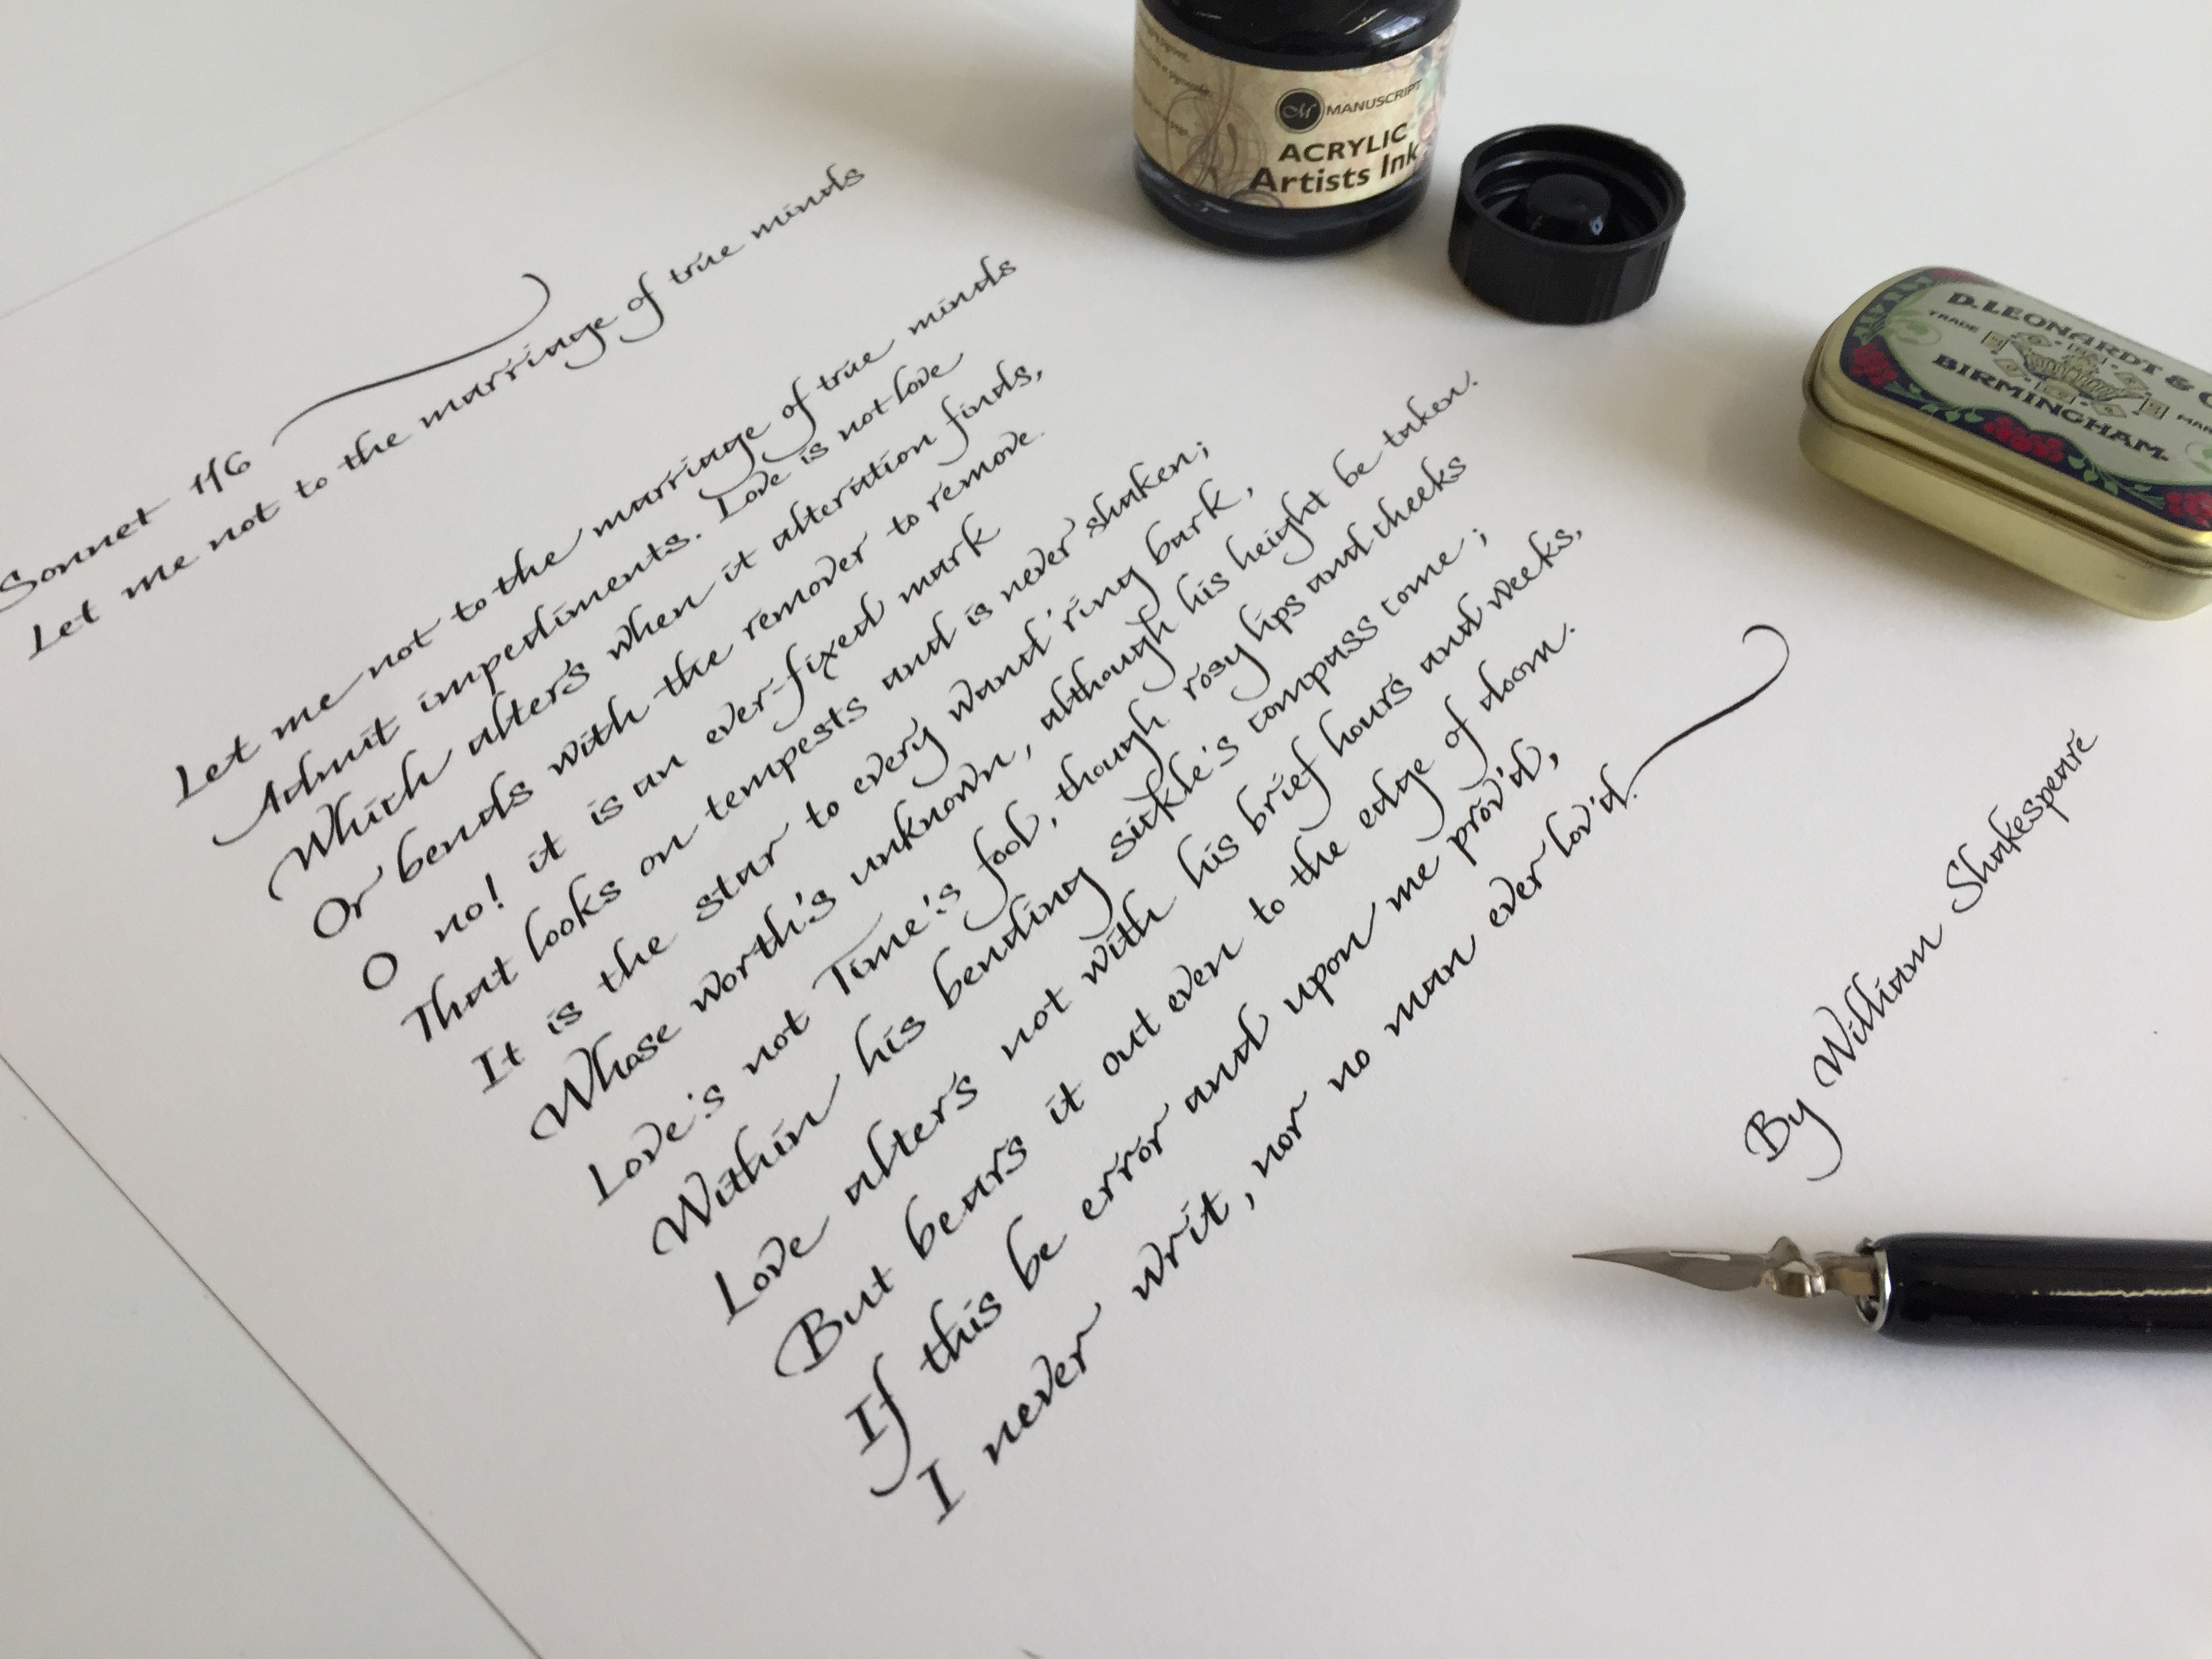 Sonnet 116
Let me not to the marriage of true minds
Let me not to the marriage of true minds
Admit impediments. Love is not love
Which alters when it alteration finds,
Or bends with the remover to remove.
O no! it is an ever-fixed mark
That looks on tempests and is never shaken;
It is the star to every wand'ring bark,
Whose worth's unknown, although his height be taken.
Love's not Time's fool, though rosy lips and cheeks
Within his bending sickle's compass come;
Love alters not with his brief hours and weeks,
But bears it out even to the edge of doom.
If this be error and upon me prov'd,
I never writ, nor no man ever lov'd.
By William Shakespeare
M MANUSCRIPT
ACRYLIC
Artists Ink
D. LEONARDT & C
TRADE MAR
BIRMINGHAM.